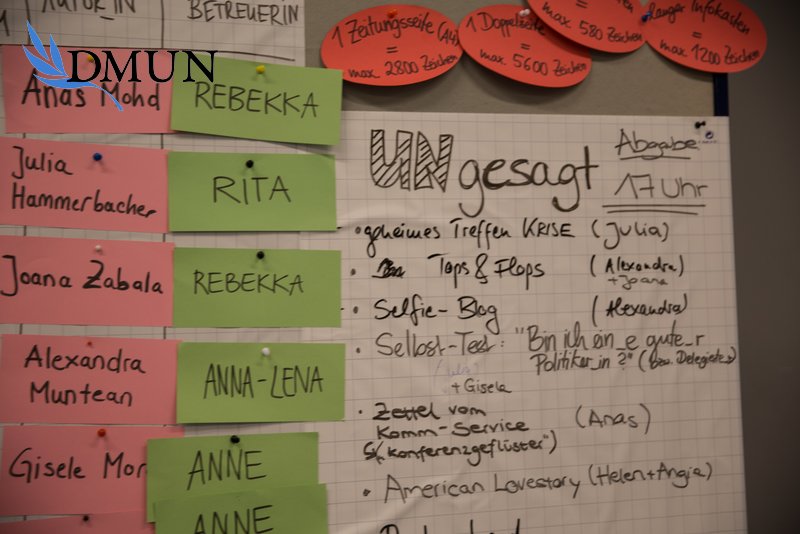 AUTOR_IN
BETREUERIN
DMUN
1 Zeitungsseite (A4)
=
max. 2800 Zeichen
1 Doppelseite
=
max. 5600 Zeichen
=
max. 580 Zeichen
langer Infokasten
=
max. 1200 Zeichen
Anas Mohd
REBEKKA
Julia
Hammerbacher
RITA
Joana Zabala
REBEKKA
Alexandra
Muntean
ANNA-LENA
Gisele Mor
ANNE
ANNE
UNgesagt
Abgabe
17 Uhr
• geheimes Treffen KRISE (Julia)
• Tops & Flops (Alexandra)
+ Joana
• Selfie-Blog (Alexandra)
• Selbst-Test: "Bin ich ein_e gute_r
Politiker_in?" (bzw. Delegierte_r)
+ Gisela
• Zettel vom
Komm-Service (Anas)
("Konferenzgeflüster")
• American Lovestory (Helen+Angia)